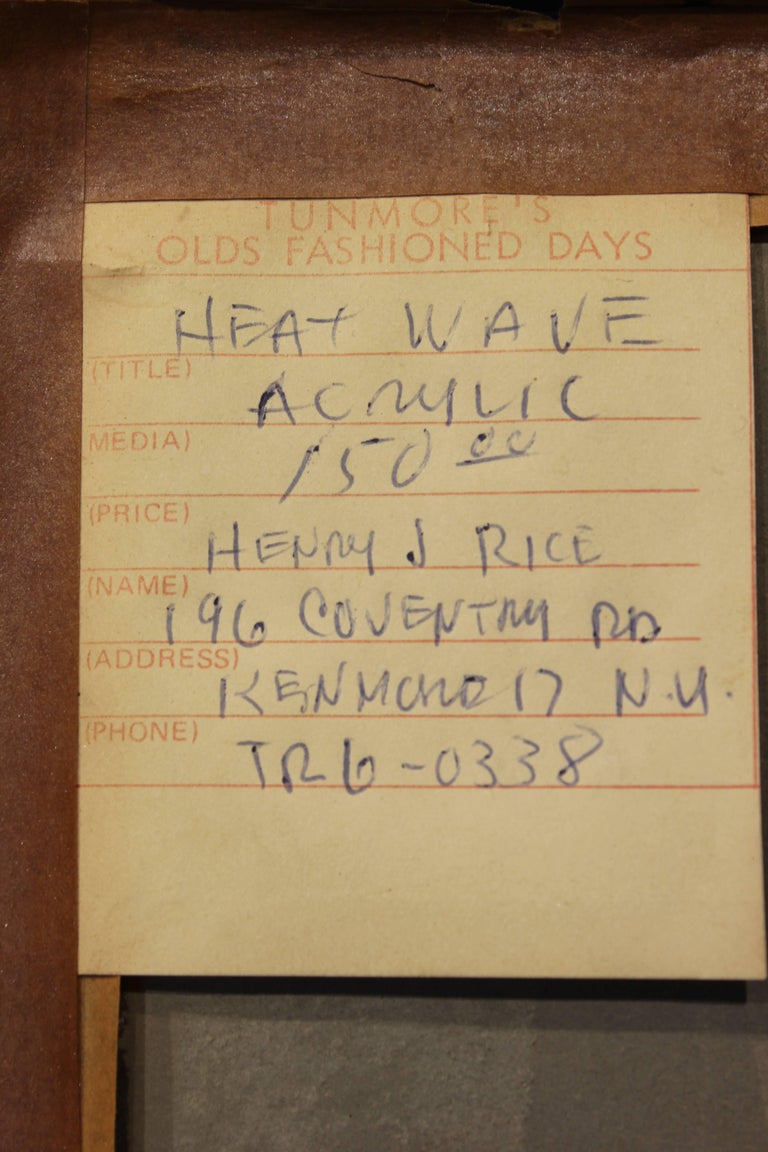 TUNMORE'S
OLDS FASHIONED DAYS
HEAT WAVE
(TITLE)
ACRYLIC
MEDIA)
150 00
(PRICE)
HENRY J RICE
(NAME)
196 COVENTRY RD
(ADDRESS)
KENMORE 17 N.Y.
(PHONE)
TR6-0338